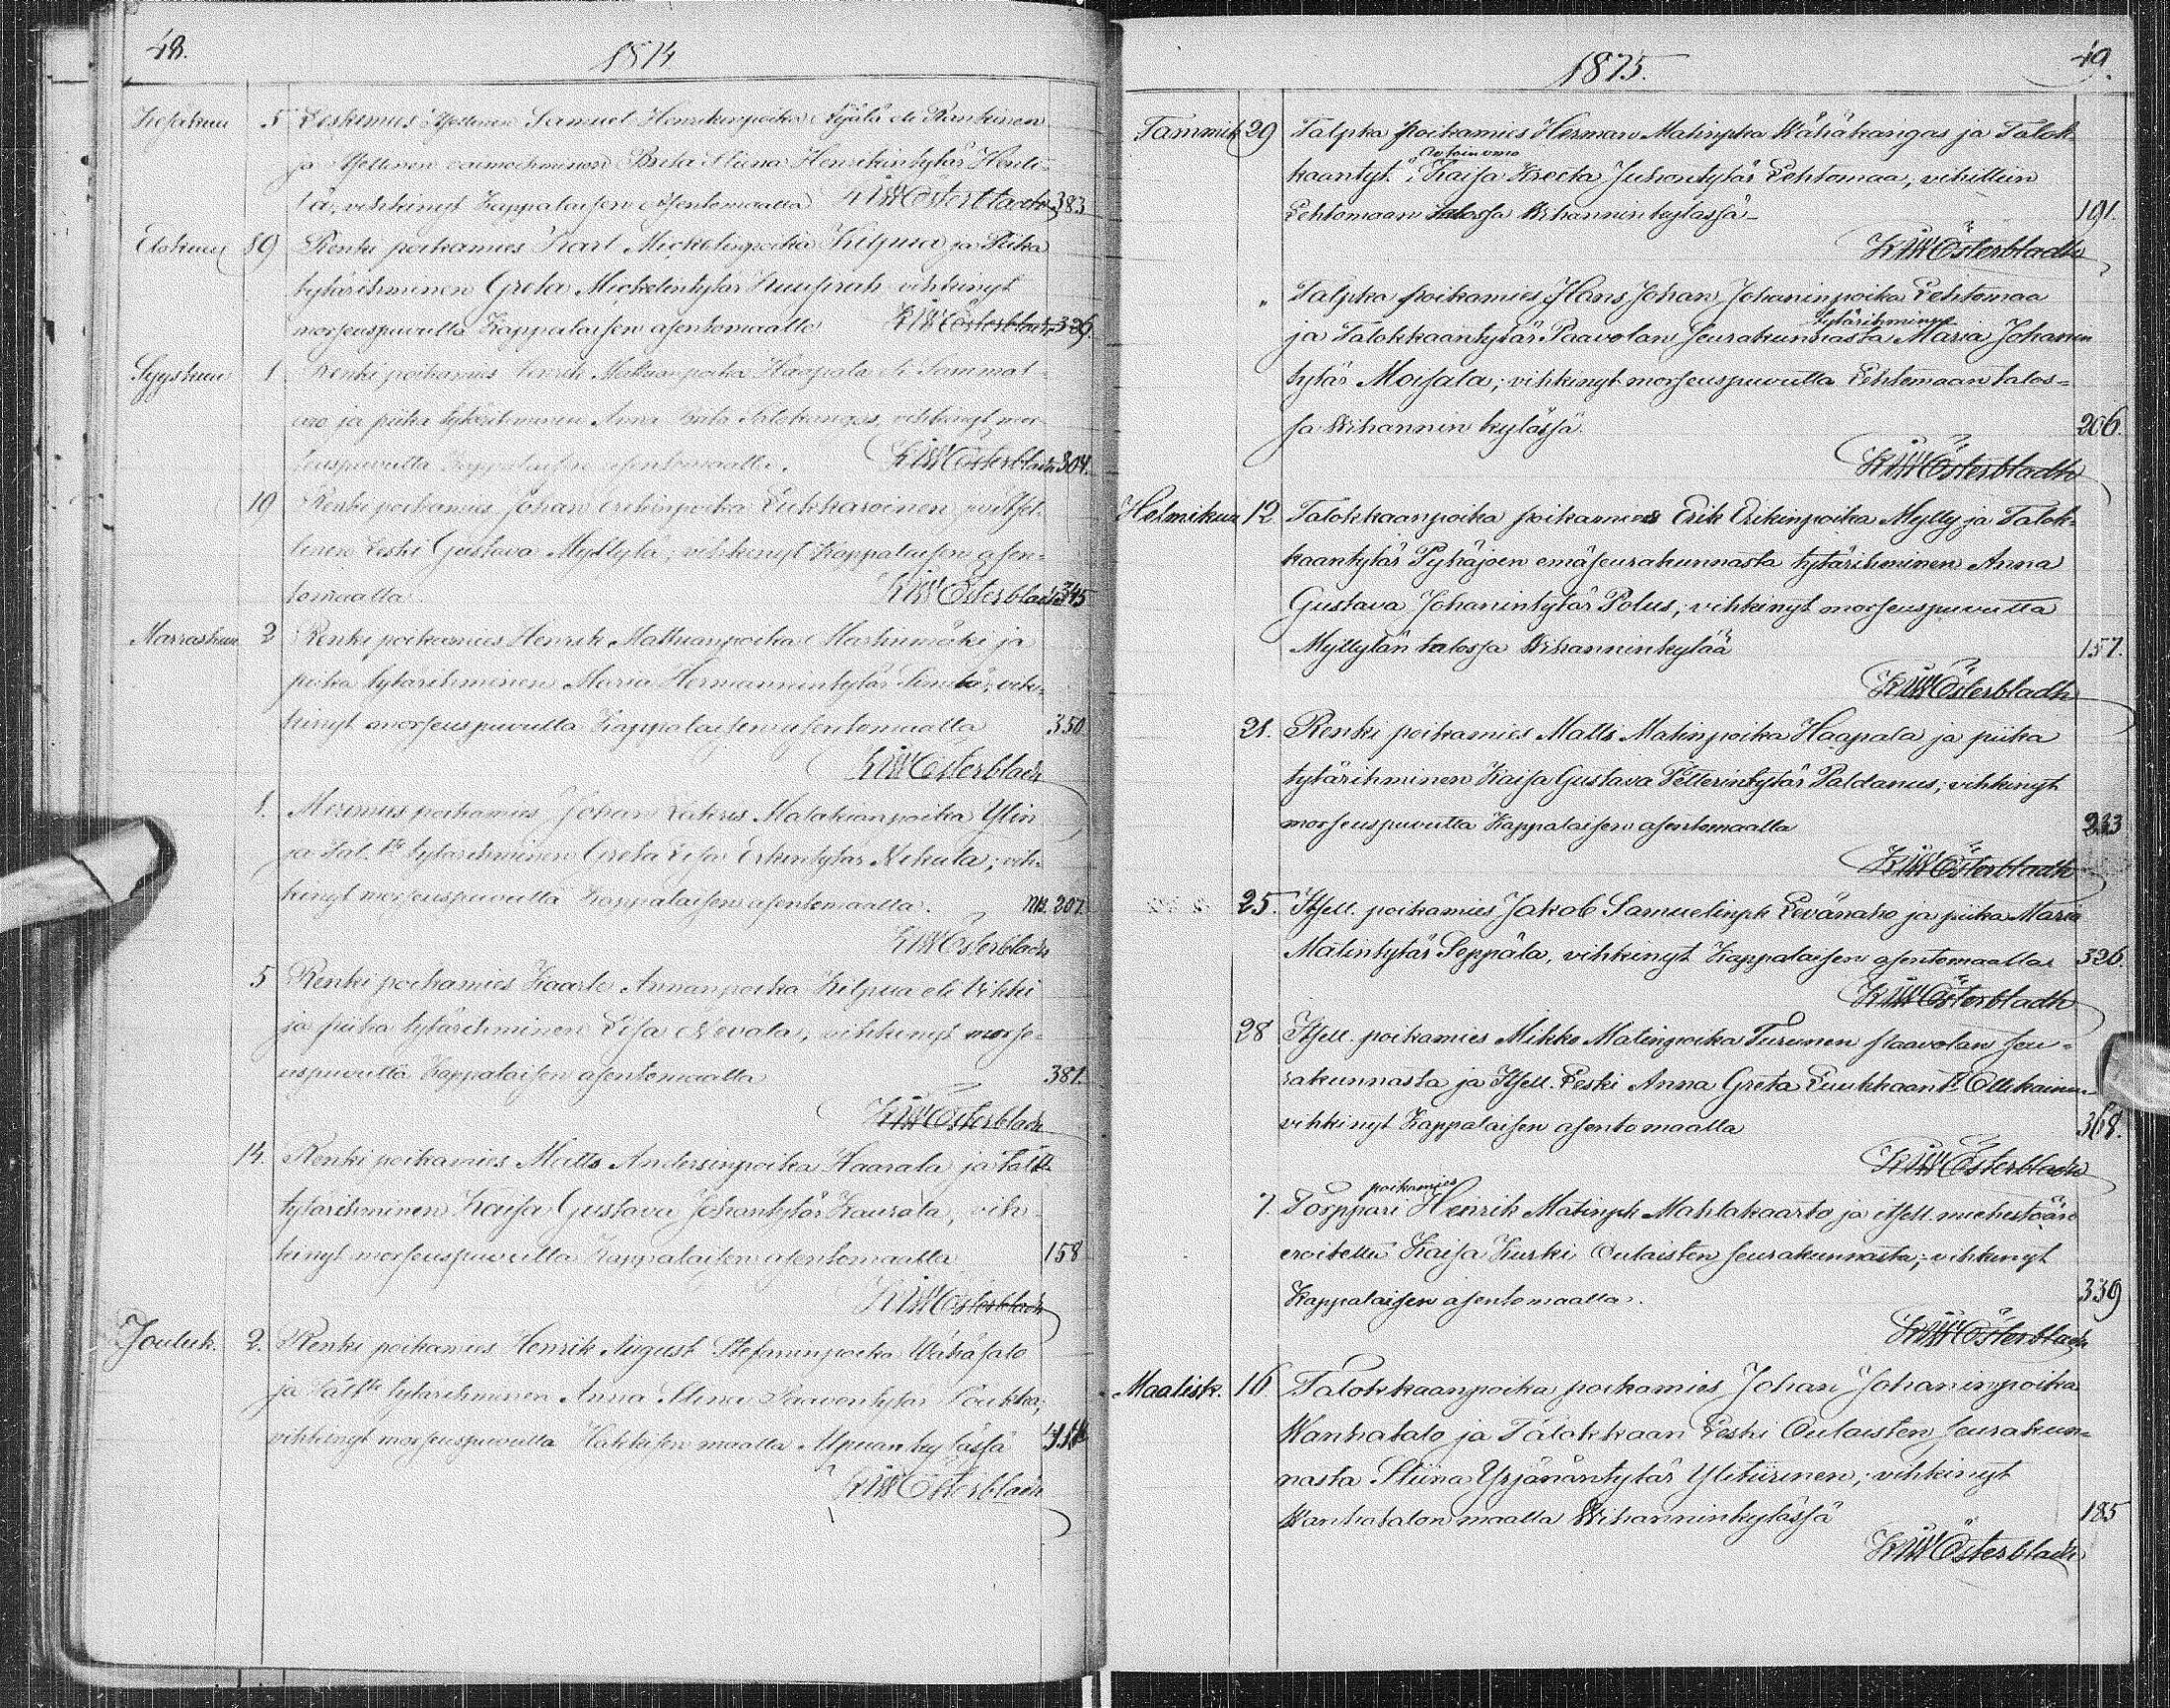 48.
1874
Kesäkuu 5 Leskimies Itsellinen Samuel Henrikinpoika Ajälä eli Rankinen
ja Itsellinen vaimoihminen Brita Stiina Henrikintytär Hento-
la, vihkinyt Kappalaisen asentomaalla KWÖsterbladh 383
Elokuu 89 Renki poikamies Karl Mickelinpoika Kilpua ja Piika
tytärihminen Greta Mickelintytär vihkinyt
morseuspuvulla Kappalaisen asentomaalla KWÖsterbladh 326.
Syyskuu 1 Renki poikamies Henrik Matinpoika Haapala eli Sammal-
ja piika tytärihminen Anna Salokangas, vihkinyt mor-
seuspuvulla Kappalaisen asentomaalla. KWÖsterbladh 304.
19 Renki poikamies Johan Erikinpoika Lukkaroinen ja Itsel-
linen Leski Gustava Myllylä; vihkinyt Kappalaisen asen-
tomaalla KWÖsterbladh 345
Marraskuu 2 Renki poikamies Henrik Mathianpoika Markinmäki ja
piika tytärihminen Maria Hermannintytär vih-
kinyt morseuspuvulla Kappalaisen asentomaalla 350
KWÖsterbladh
1. Merimies poikamies Johan Zakris Malakianpoika Ylin
ja Tal. tr tytärihminen Greta Lisa Erkintytär Nikula; vih-
kinyt morseuspuvulla Kappalaisen asentomaalla. 207
KWÖsterbladh
5 Renki poikamies Kaarle Annanpoika Kilpua eli Wikki
ja piika tytärihminen Lisa Nevala, vihkinyt morse-
uspuvulla Kappalaisen asentomaalla 381.
KWÖsterbladh
14. Renki poikamies Matts Andersinpoika Haarala ja Tal tr
tytärihminen Kaisa Gustava Johantytär Kaurala, vih-
kinyt morseuspuvulla Kappalaisen asentomaalla 158
KWÖsterbladh
Jouluk. 2. Renki poikamies Henrik August Stefaninpoika Wähäsalo
ja Tal tr tytärihminen Anna Stina Paavontytär Loukka;
vihkinyt morseuspuvulla Hakkisen maalla Alpuan kylässä
KWÖsterbladh
1875.
49.
Tammik 29 Talpka poikamies Herman Matinpka Wähäkangas ja Talok-
kaantyt. Kaisa Kreeta Juhontytär Lehtomaa, vihittiin
Lehtomaan talossa Wihannin kylässä 191.
KWÖsterbladh
" Talpka poikamies Hans Johan Johaninpoika Lehtomaa
tytärihminen
ja Talokkaantytär Paavolan seurakunnasta Maria Johanin
tytär Moisala; vihkinyt morseuspuvulla Lehtomaan talos-
sa Wihannin kylässä 206.
KWÖsterbladh
Helmikuu 12. Talokkaanpoika poikamies Erik Erikinpoika Mylly ja Talok-
kaantytär Pyhäjoen emäseurakunnasta tytärihminen Anna
Gustava Johanintytär Polus; vihkinyt morseuspuvulla
Myllylän talossa Wihanninkylää 157.
KWÖsterbladh
21. Renki poikamies Matts Matinpoika Haapala ja piika
tytärihminen Kaisa Gustava Petterintytär Paldanus; vihkinyt
morseuspuvulla Kappalaisen asentomaalla 233
KWÖsterbladh
25. Itsell. poikamies Jakob Samuelinpk Levänaho ja piika Maria
Matintytär Seppälä, vihkinyt Kappalaisen asentomaalla 326.
KWÖsterbladh
28 Itsell. poikamies Mikko Matinpoika Turunen Paavolan seu-
rakunnasta ja Itsell. Leski Anna Greta Luukkaan tr Ollikainen
vihkinyt Kappalaisen asentomaalla 368.
KWÖsterbladh
poikamies
". Torppari Heinrik Matinpk Mahlakaarto ja itsell. miehestään
eroitettu Kaisa Kurki Oulaisten seurakunnasta; vihkinyt
Kappalaisen asentomaalla. 339
KWÖsterbladh
Maalisk. 16 Talokkaanpoika poikamies Johan Johaninpoika
Wanhatalo ja Talokkaan Leski Oulaisten seurakun-
nasta Stiina Yrjänäntytär Ylitiirinen; vihkinyt
Wanhatalon maalla Wihanninkylässä 185
KWÖsterbladh